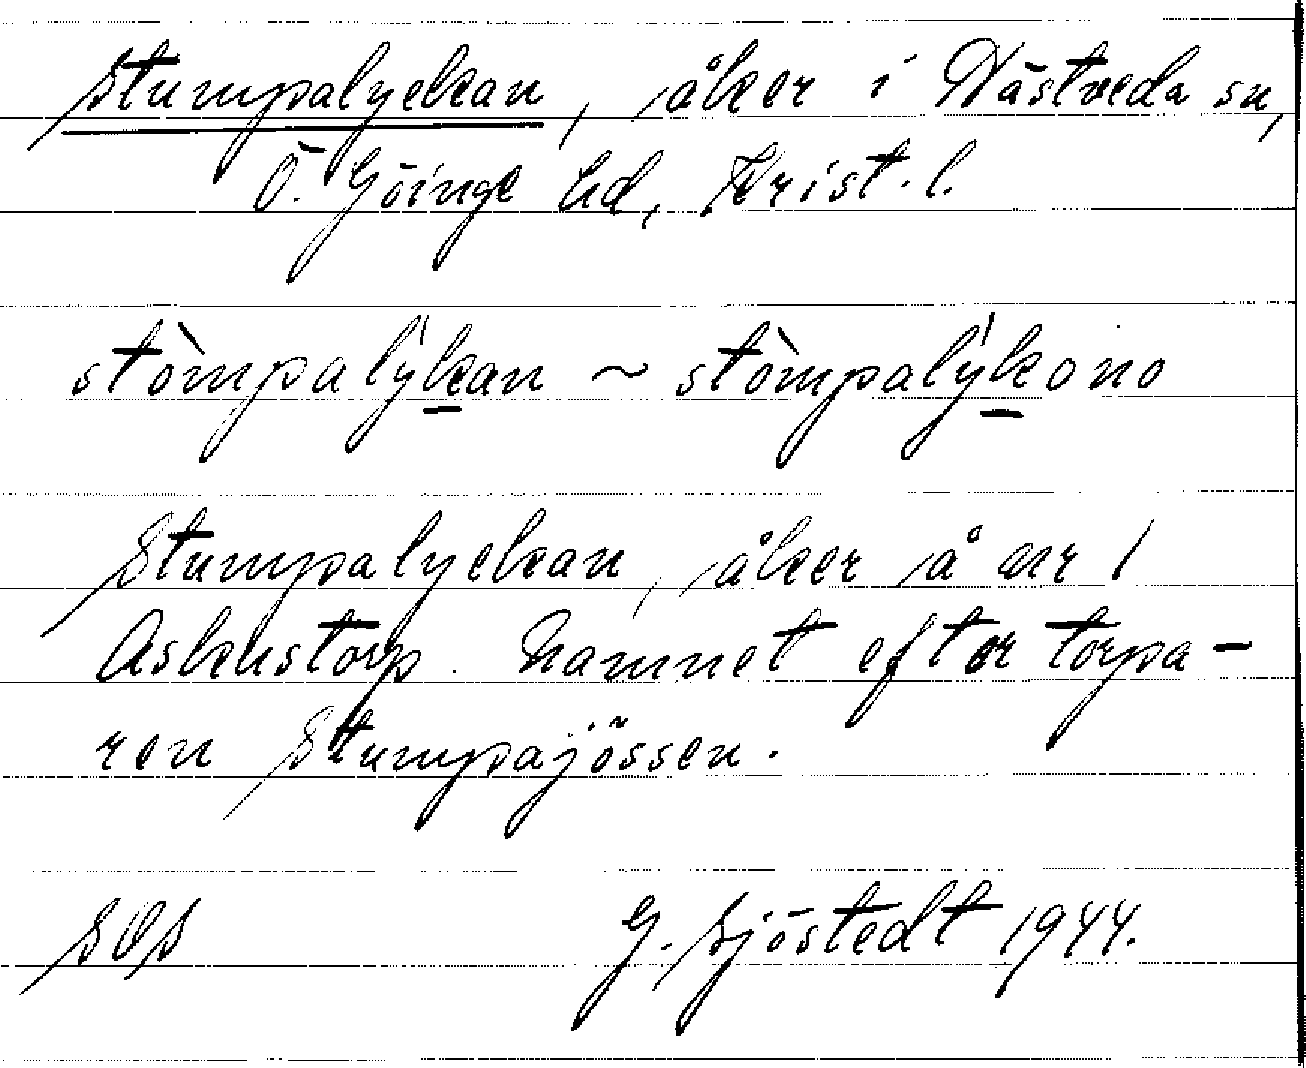 Stumpalyckan, åker i Nästveda sn,
Ö. Göinge hd, Krist. l.
stòmpalýkan ~ stòmpalýkono
Stumpalyckan, åker å nr 1
Askustorp. Namnet efter torpa-
ren Stumpajössen.
SOS G. Sjöstedt 1944.